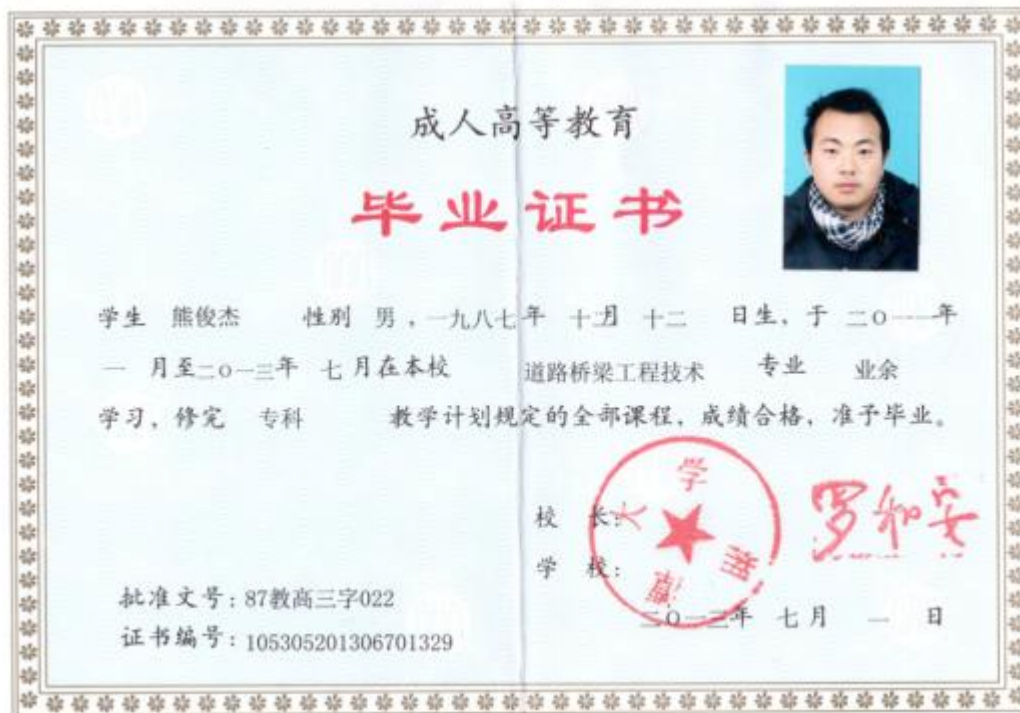 成人高等教育
毕业证书
学生 熊俊杰 性别 男 ，一九八七年 十月 十二 日生，于 二○一一年
一 月至二○一三年 七 月在本校 道路桥梁工程技术 专业 业余
学习，修完 专科 教学计划规定的全部课程，成绩合格，准予毕业。
校 长： 罗和安
学 校：
大学
湘潭
批准文号：87教高三字022
证书编号：105305201306701329
二○一三年 七月 一 日